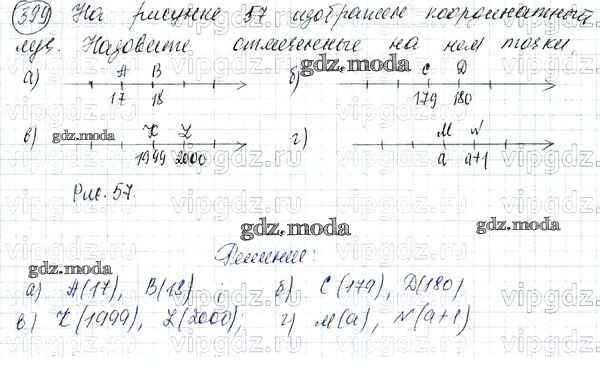 399 На рисунке 57 изображен координатный
луч. Назовите отмеченные на нем точки.
а) A B б) C D
17 18 179 180
в) K Z г) M N
1999 2000 a a+1
Рис. 57.
Решение:
а) A(17), B(18); б) C(179), D(180)
в) K(1999), Z(2000); г) M(a), N(a+1)
gdz.moda
gdz.moda
gdz.moda
gdz.moda
gdz.moda
vipgdz.ru